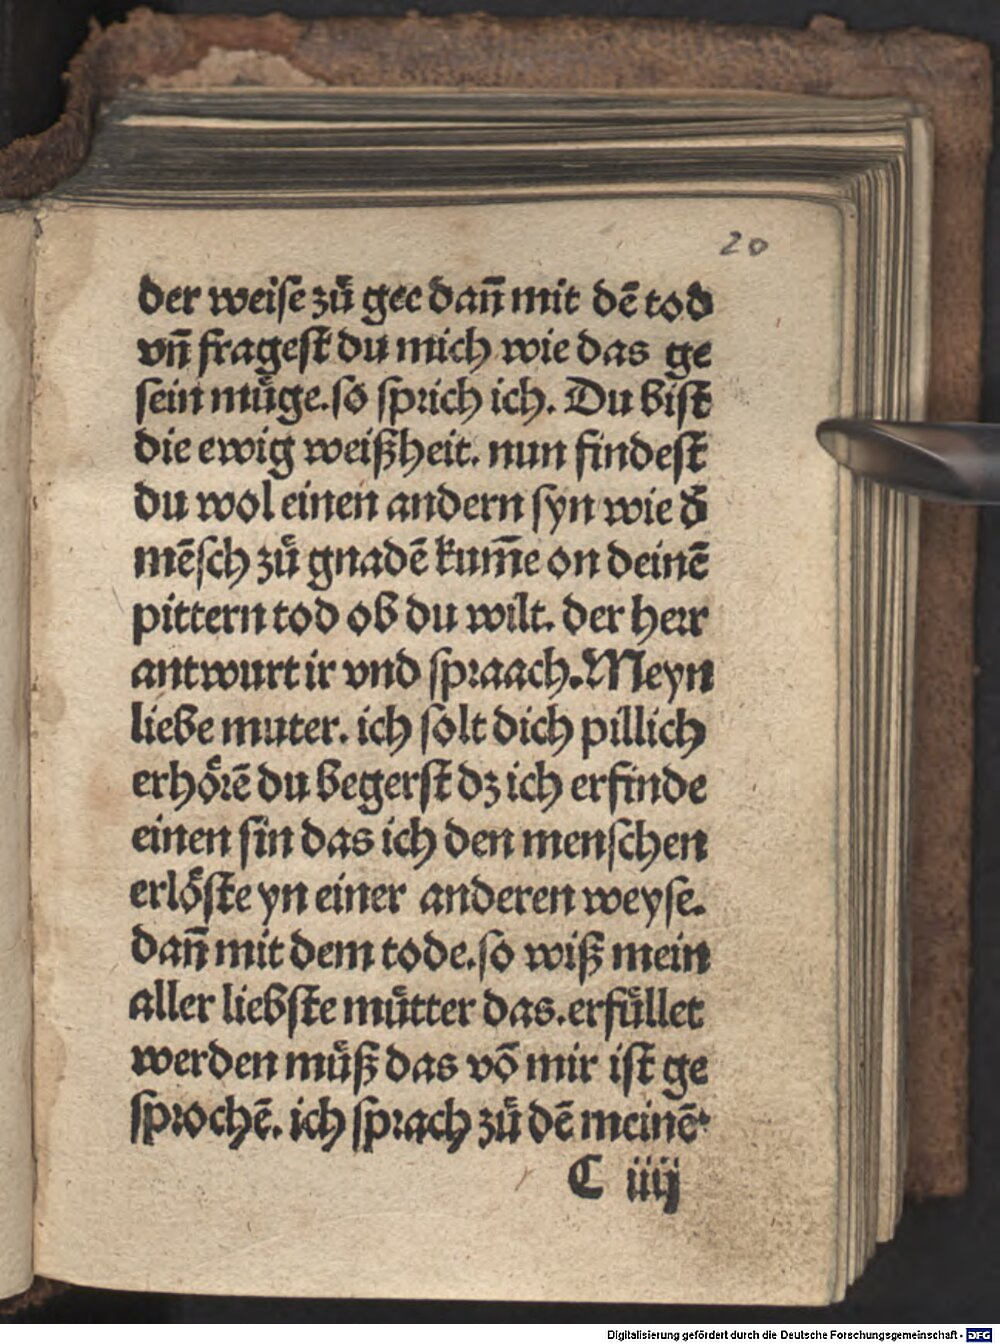 20
der weise zů gee dañ mit dē tod
vñ fragest du mich wie das ge
sein müge. so sprich ich. Du bist
die ewig weißheit. nun findest
du wol einen andern syn wie d̄
mēsch zů gnadē kum̄e on deinē
pittern tod ob du wilt. der herr
antwurt ir vnd spraach. Meyn
liebe muter. ich solt dich pillich
erhörē du begerst dz ich erfinde
einen sin das ich den menschen
erlöste yn einer anderen weyse.
dañ mit dem tode. so wiß mein
aller liebste můtter das. erfüllet
werden můß das vō mir ist ge
sprochē. ich sprach zů dē meinē.
C iiij
Digitalisierung gefördert durch die Deutsche Forschungsgemeinschaft - DFG